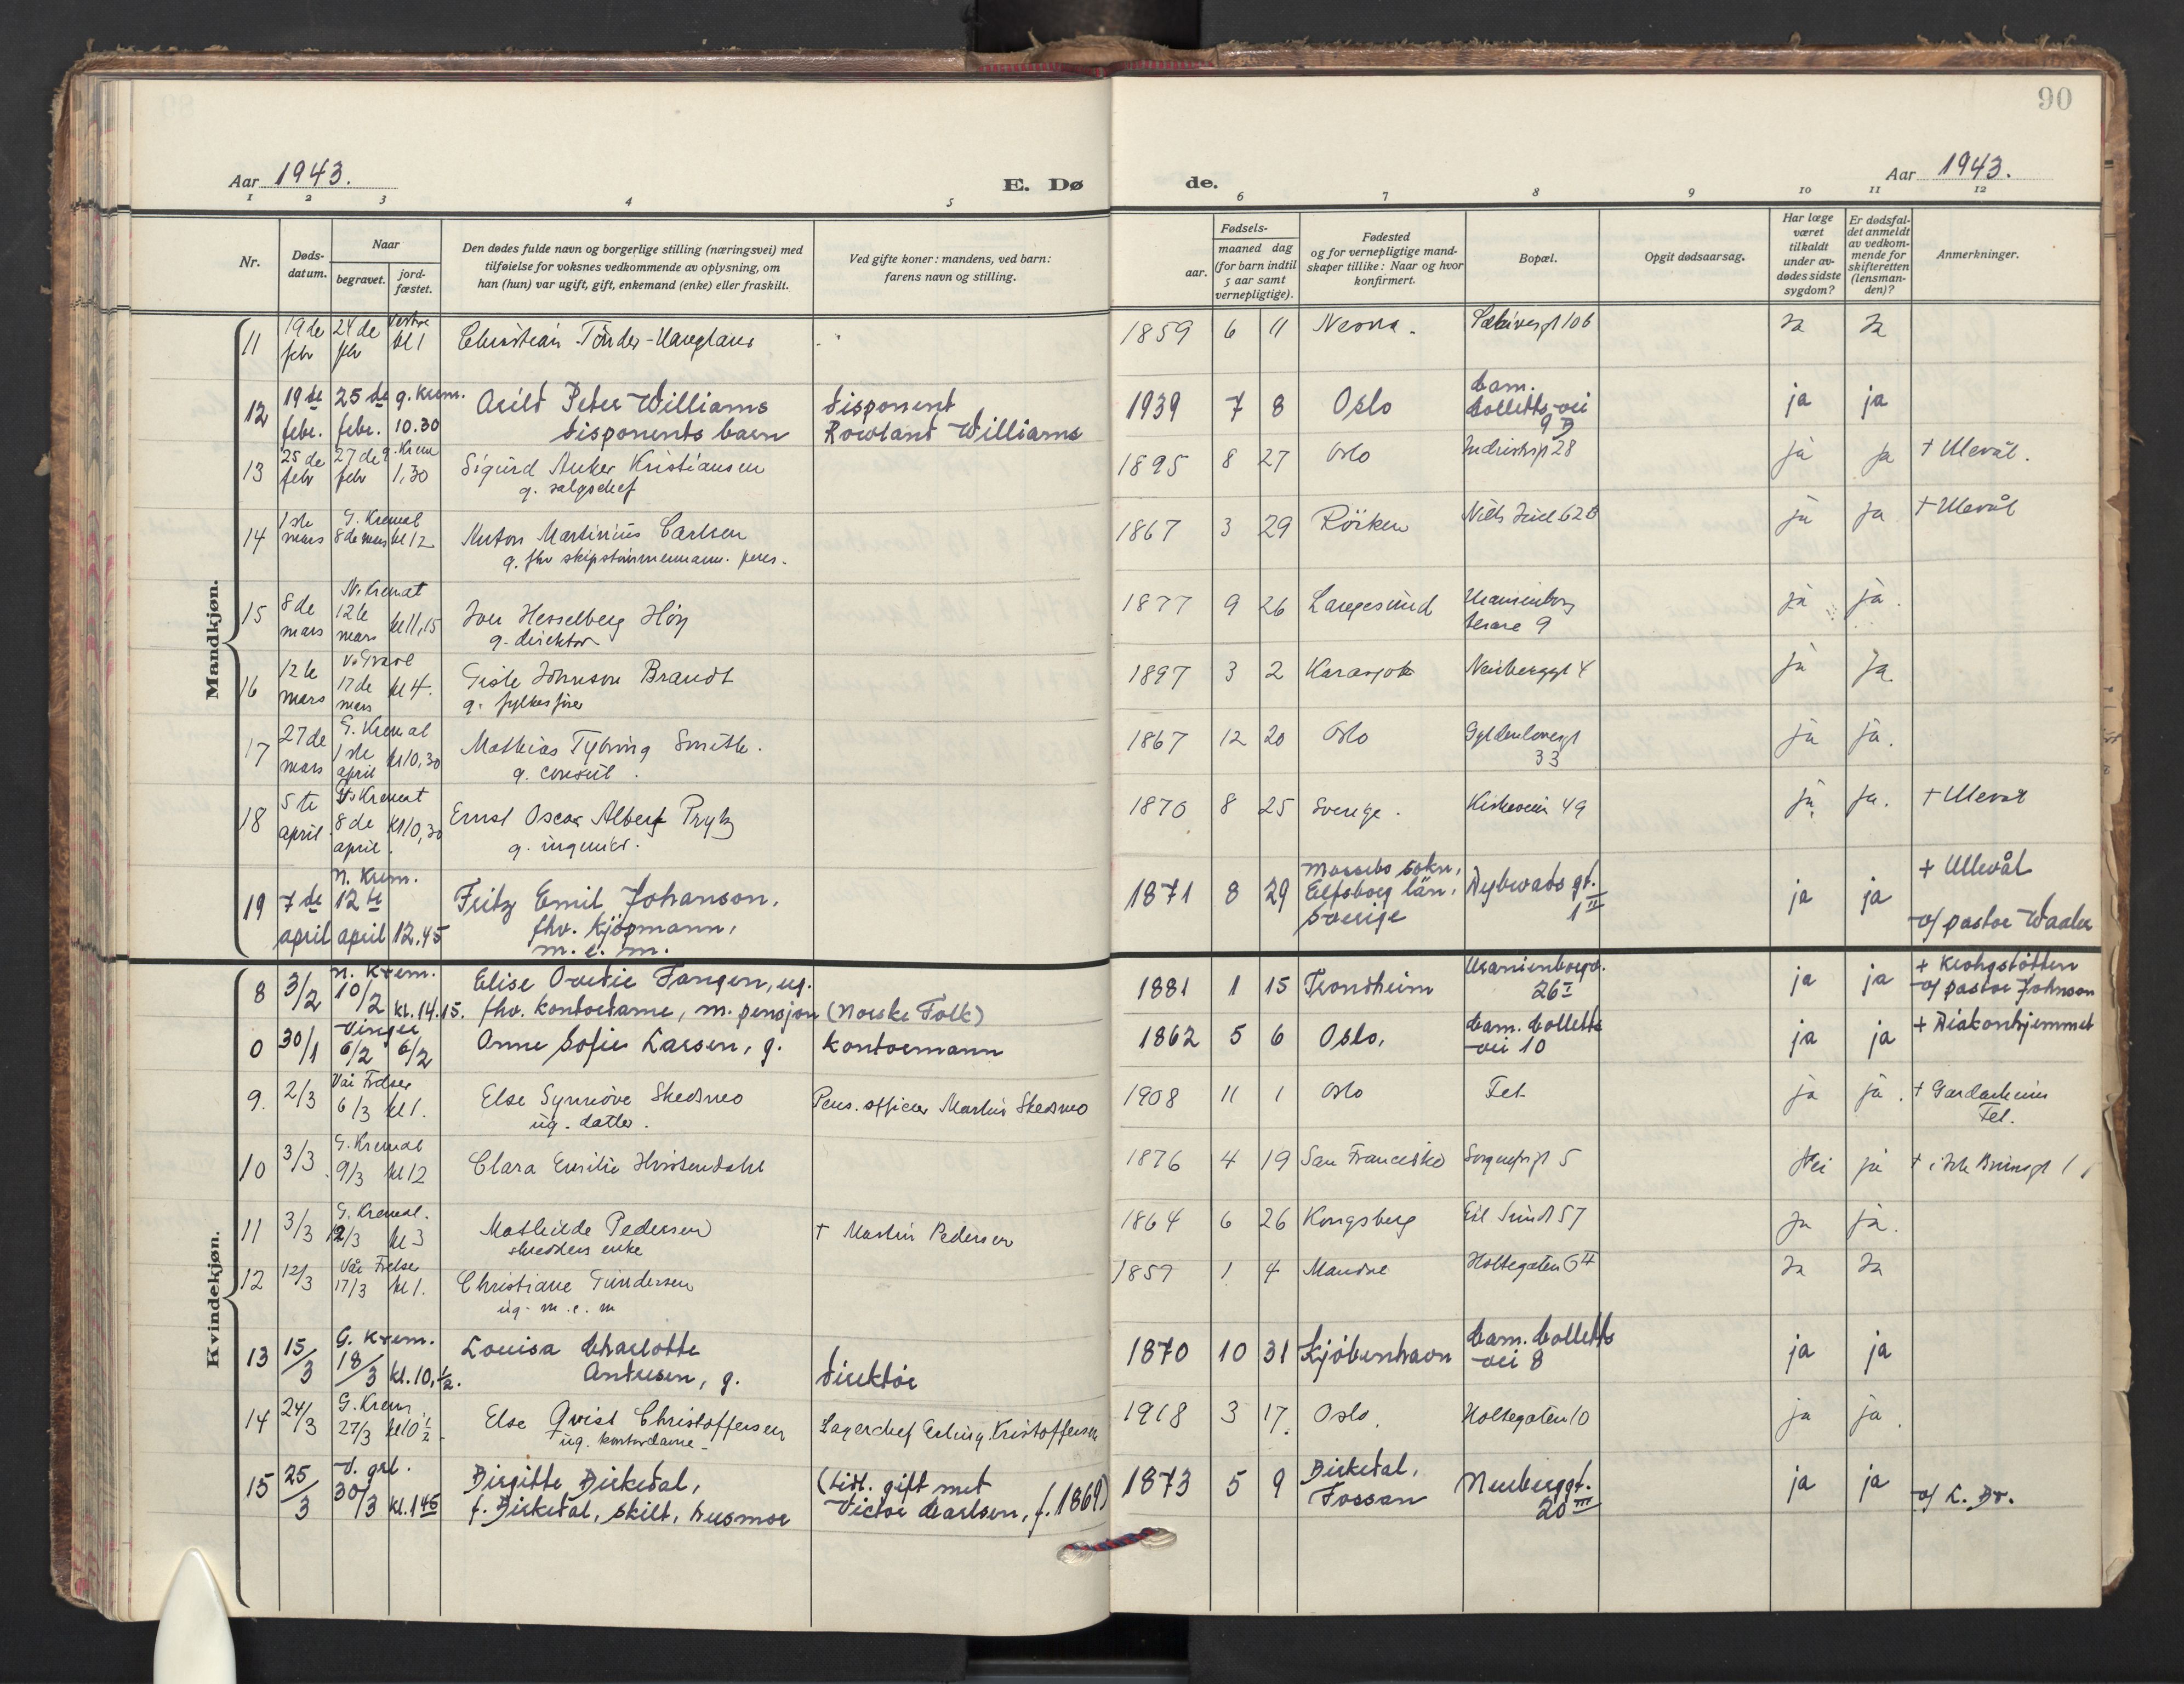 90
Aar 1943.
E. Dø
de.
Aar 1943.
1 2 3 4 5
6 7 8 9 10 11 12
Nr.
Døds-
datum.
Naar
begravet.
jord-
fæstet.
Den dødes fulde navn og borgerlige stilling (næringsvei) med
tilføielse for voksnes vedkommende av oplysning, om
han (hun) var ugift, gift, enkemand (enke) eller fraskilt.
Ved gifte koner: mandens, ved barn:
farens navn og stilling.
Fødsels-
aar.
maaned dag
(for barn indtil
5 aar samt
vernepligtige).
Fødested
og for vernepligtige mand-
skaper tillike: Naar og hvor
konfirmert.
Bopæl.
Opgit dødsaarsag.
Har læge
været
tilkaldt
under av-
dødes sidste
sygdom?
Er dødsfal-
det anmeldt
av vedkom-
mende for
skifteretten
(lensman-
den)?
Anmerkninger.
Mandkjøn.
11 19de febr 24de febr kl 1 Christian Tönder- 1859 6 11 106 Ja Ja
12 19de febr. 25de febr. g. Krem. 10.30 Arild Peter Williams
disponents barn
disponent
Rowland Williams
1939 7 8 Oslo Cam.
Colletts vei
9 B
ja ja
13 25de febr 27de febr g. Krem 1,30 Sigurd Anker Kristiansen
g. salgschef
1895 8 27 Oslo 28 ja ja + Ulevål.
14 1ste mars G. Kremat 8de mars kl 12 Anton Martinius Carlsen
g. fhv skipstömmermann. pens.
1867 3 29 Röiken Niels Juel 62 ja ja + Ulevål
15 8de mars N. Kremat 12te mars kl 11,15 Iver Hesselberg Höy
g. direktör
1877 9 26 Langesund Uranienborg
terasse 9
ja ja.
16 12te mars V. Gravl 17de mars kl 4. Gisle Johnson Brandt
g. fylkesfører
1897 3 2 Karasjok Neuberggt 4 ja ja
17 27de mars G. Kremat 1ste april kl 10,30 Mathias Tybring Smith.
g. consul.
1867 12 20 Oslo Gyldenlövesgt
33
ja ja.
18 5te april Kremat 8de april kl 10,30 Ernst Oscar Albert Prytz
g. ingeniör.
1870 8 25 Sverige. Kirkeveien 49 ja ja. + Ulevål
19 7de april N. Krem. 12te april 12.45 Fritz Emil Johanson,
fhv. kjöpmann,
m. e. m.
1871 8 29 sokn,
Elfsborg län,
Sverige
Nybrodds gt.
1 II
ja ja + Ullevål
v/ pastor Waaler
Kvindekjøn.
8 3/2 N. Krem. 10/2 kl. 14.15. Elise Ovedie Fangen, ug.
fhv. kontordame, m. pensjon (Norske Folk)
1881 1 15 Trondheim Uranienborgv.
26 I
ja ja + Krohgstötten
v/ pastor Johnson
0 30/1 Vinger 6/2 6/2 Anne Sofie Larsen, g. kontormann
1862 5 6 Oslo, Cam. Colletts
vei 10
ja ja + Diakonhjemmet
9. 2/3 Vår Frelser 6/3 kl 1. Else Synnöve Skedsmo
ug. datter.
Pens. officer Martin Skedsmo
1908 11 1 Oslo Fet ja ja. + Gardarheim
Fet.
10 3/3 G. Kremat 9/3 kl 12 Clara Emilie Hvistendahl
1876 4 19 San Francisko Sorgenfrigt 5 Nei ja
11 3/3 G. Kremat. 12/3 kl 3 Mathilde Pedersen
skredders enke
+ Martin Pedersen
1864 6 26 Kongsberg Eil Sundt 57 Ja ja.
12 12/3 Vår Frelser 17/3 kl 1. Christiane Gundersen
ug. m. e. m
1859 1 4 Mandal Holtegaten 6 II Ja Ja
13 15/3 G. Krem. 18/3 kl. 10,1/2. Louisa Charlotte
Andresen, g.
direktör
1870 10 31 Kjöbenhavn Cam. Colletts
vei 8
ja ja
14 24/3 G. Krem 27/3 kl 10 1/2 Else Qvist Christoffersen
ug. kontordame
Lagerchef Erling Kristoffersen
1918 3 17. Oslo. Holtegaten 10 ja ja.
15 25/3 V. grl. 30/3 kl. 1 45 Birgitte Dirkedal,
f. Dirkedal, skilt, husmor
(tidl. gift med
Victor Carlsen, f. 1869)
1873 5 9 Dirkedal,
Fossan
Neuberggt.
20 III
ja ja v/ K. Br.